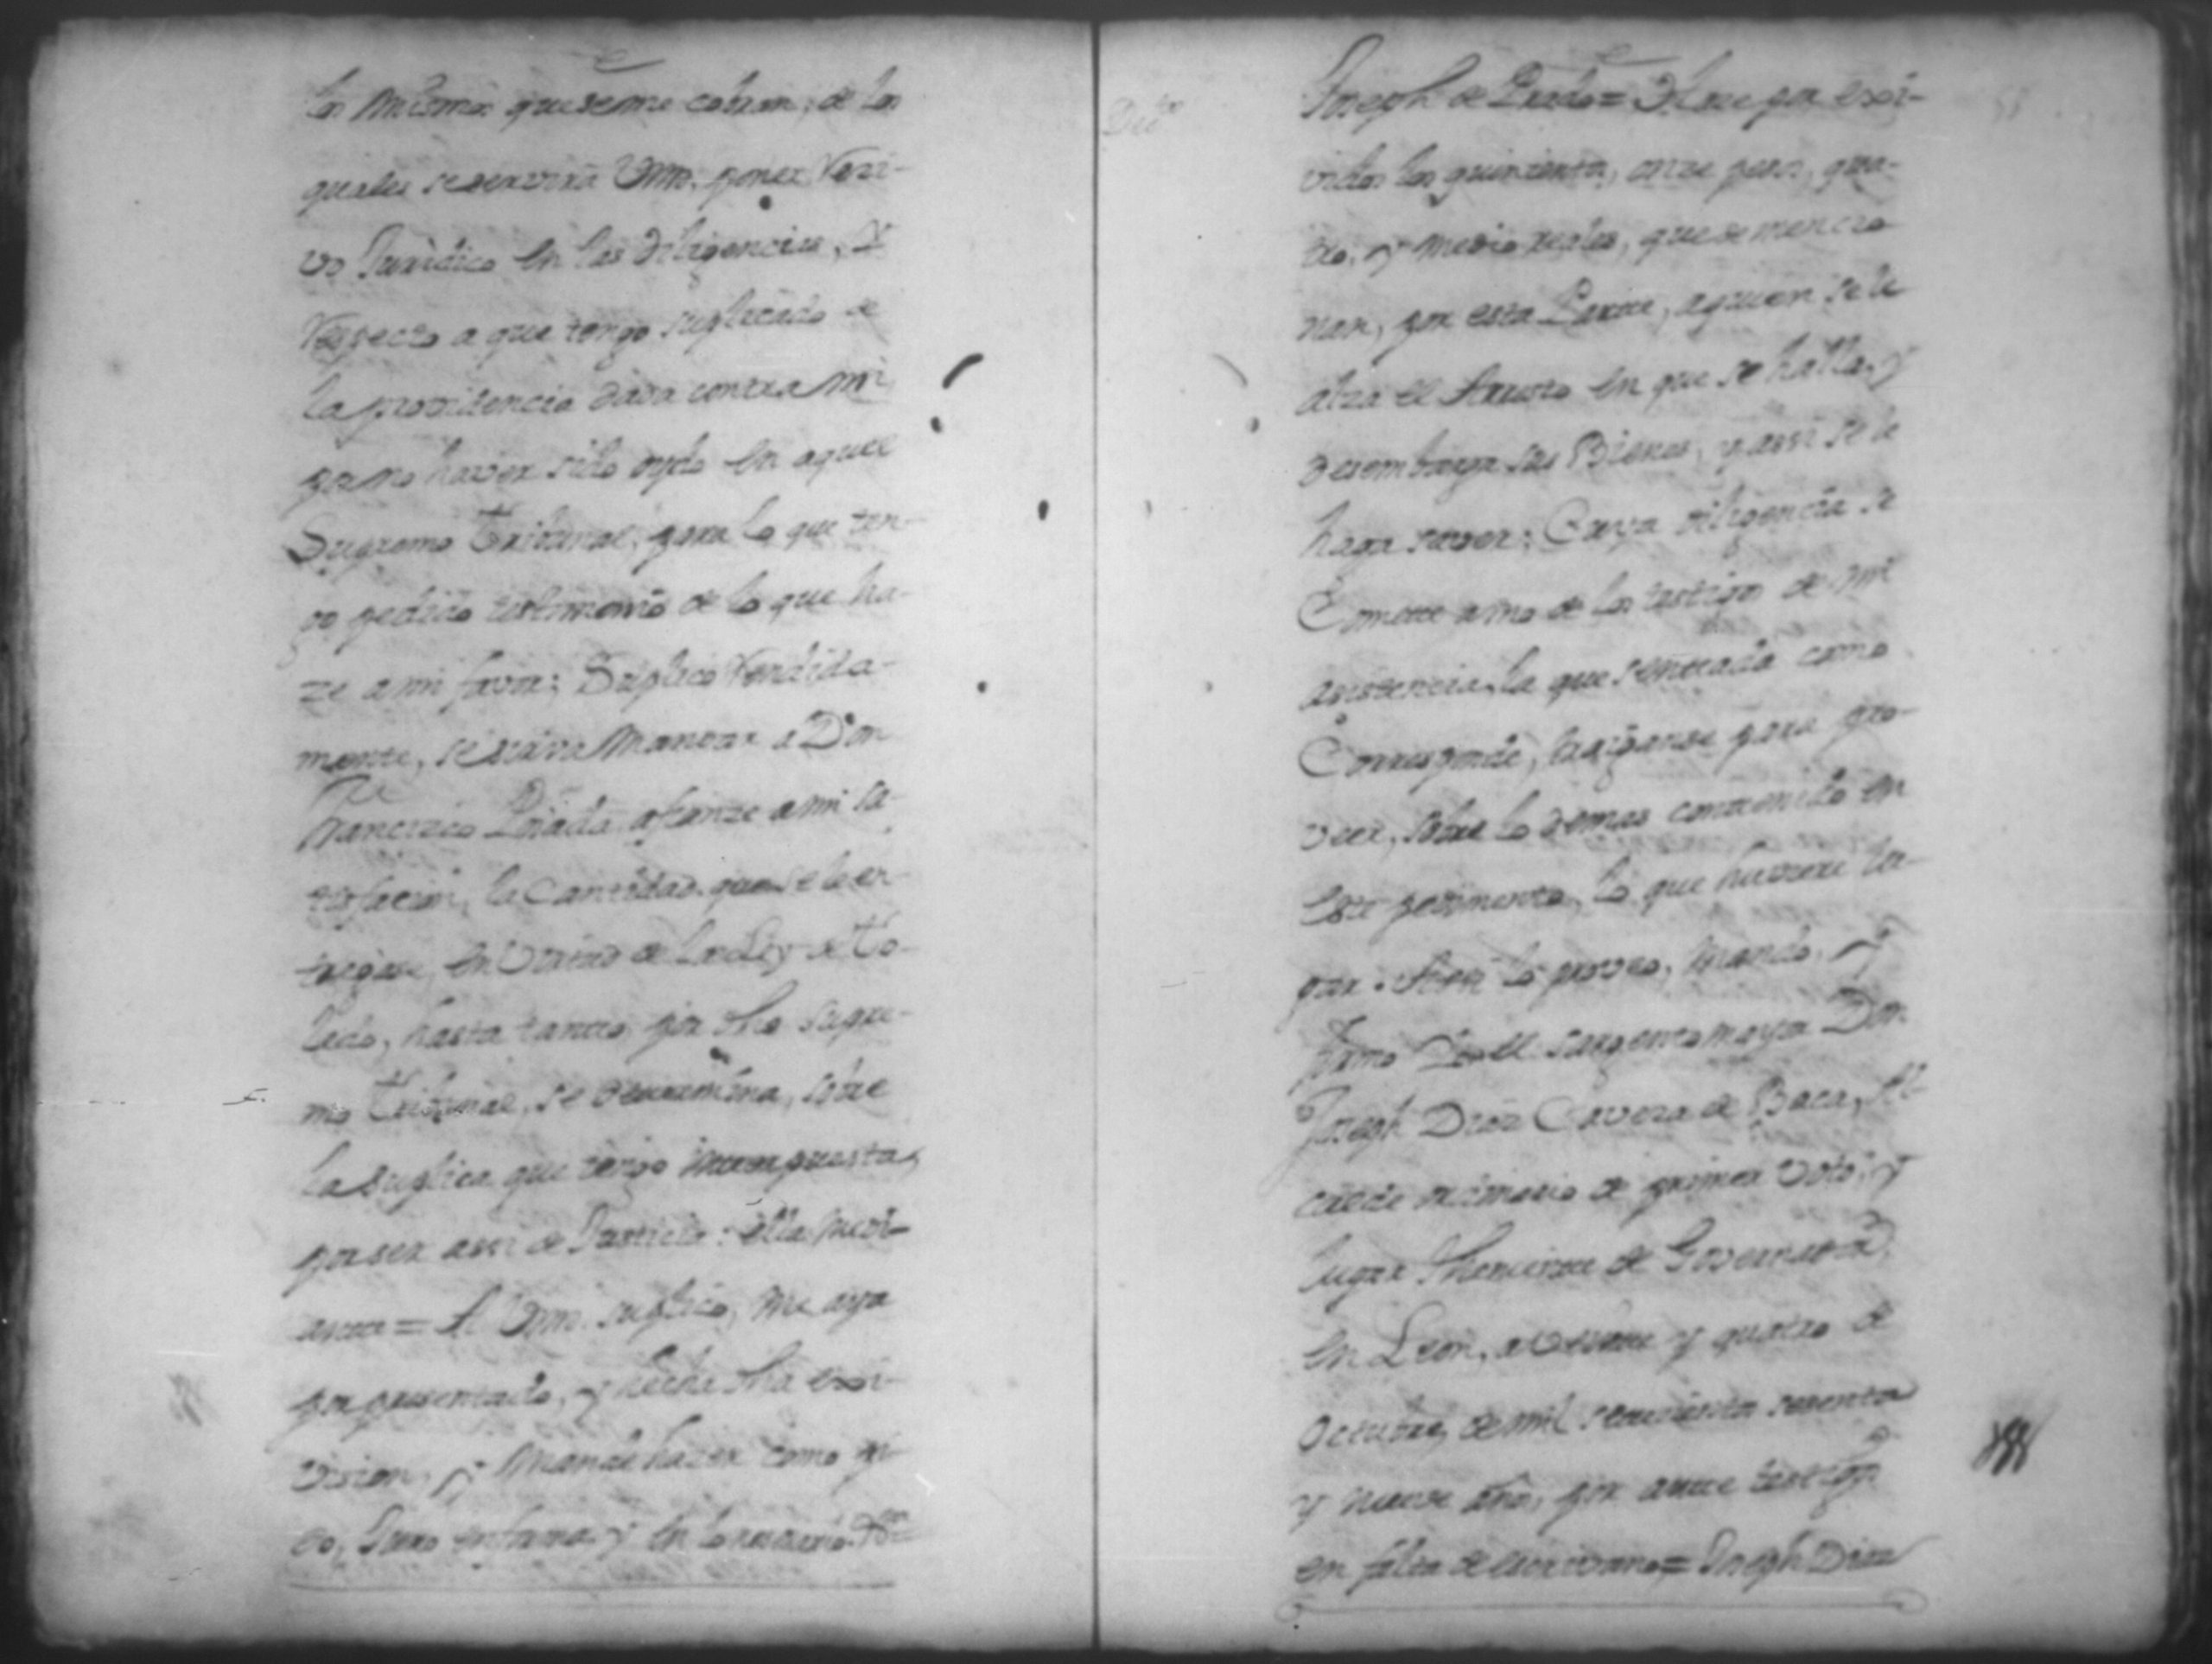 los mismos que se me cobran, de los
quales se servira Vmm. poner Reci-
vo Juridico en las diligencias, Y
Respecto a que tengo suplicado de
la providencia dada contra mi
por no haver sido oydo en aquel
Supremo Tribunal, para lo que ten-
go pedido testimonio de lo que ha-
ze a mi favor; Suplico Rendida-
mente, se sirva Mandar a Don
Francisco Posada afianze a mi sa-
tisfacion, la Cantidad que se le en-
tregase, en Virtud de la Ley de To-
ledo, hasta tanto por dho supre-
mo Tribunal, se determina, sobre
la suplica que tengo interpuesta,
por ser assi de Justicia: ella medi-
ante = A Vmm. suplico, me aya
por presentado, y hecha dha exi-
vision, y Mande hazer como pi-
do, Juro en forma y en lo necesario &a =
Joseph de Prado = Dase por exi-
Dec.to
vidos los quinientos, onze pesos, qua-
tro, y medio reales, que se mencio
nan, por esta Parte, a quien se le
alza el Arresto en que se halla, y
desembarga sus Bienes, y assi se le
haga saver: Cuya diligencia se
Comete a uno de los testigos de mi
asistencia, la que sentada como
Corresponde, traiganse para pro-
veer, sobre lo demas contenido en
este pedimento, lo que huviere lu-
gar. Assi lo proveo, mando, y
firmo Yo el Sargento mayor Don
Joseph Diaz Caveza de Baca, Al-
calde ordinario de primer Voto, y
lugar Theniente de Governador
en Leon, a Veinte y quatro de
Octubre, de mil setecientos sesenta
y nueve años, por ante testigos
en falta de escrivano = Joseph Diaz